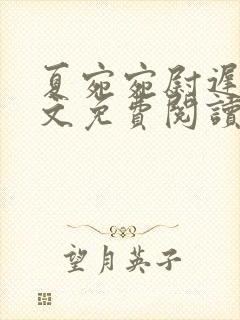 夏宛宛尉遲
文免費閱讀
望月英子